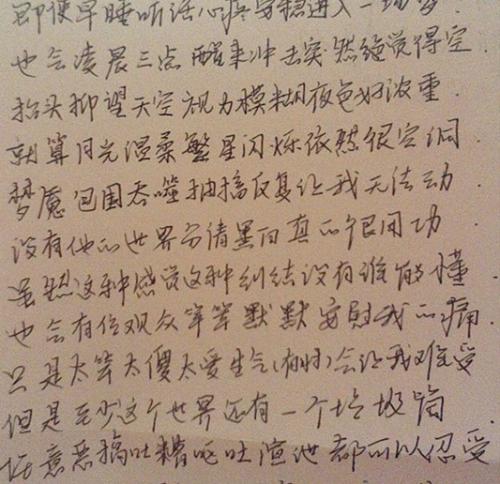 即便早睡听话心疼安稳进入一场梦.
也会凌晨三点醒来冲击突然绝觉得空.
抬头仰望天空视力模糊夜色好浓重.
就算月光温柔繁星闪烁依然很空洞
梦魇包围吞噬抽搐反复让我无法动.
没有他的世界分清黑白真的很用功
虽然这种感觉这种纠结没有谁能懂.
也会有位观众笨笨默默安慰我的痛.
只是太笨太傻太爱生气(有时)会让我难受
但是至少这个世界还有一个垃圾筒.
任意恶搞吐糟呕吐渲泄都可以忍受